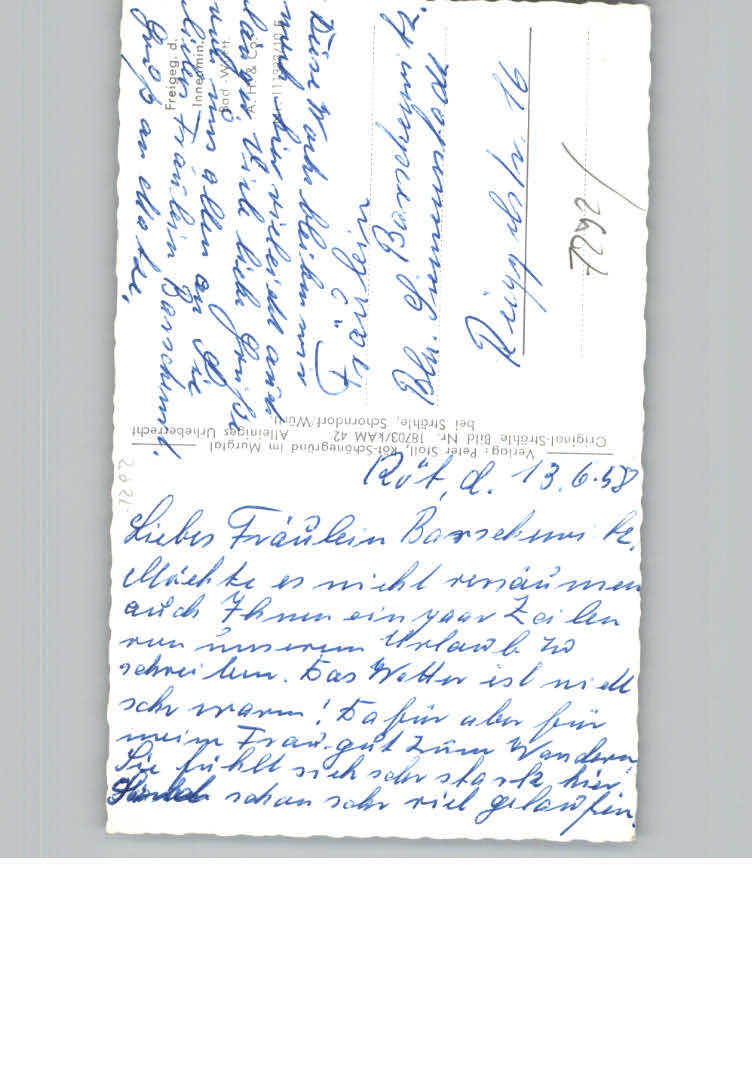 Röt, d. 13.6.58
Liebes Fräulein
Möchte es nicht versäumen
auch Ihnen ein paar Zeilen
von unserem Urlaub zu
schreiben. Das Wetter ist nicht
sehr warm! Dafür aber für
meine Frau gut zum Wandern
Sie fühlt sich sehr stark hier
schon sehr viel gelaufen.
Diese Woche bleiben wir
noch hier vieleicht auch
viele liebe Grüße
von uns allen an Sie
liebes Fräulein
Gruß an
Verlag: Peter Stoll, Röt-Schönegründ im Murgtal
Original-Strähle Bild Nr. 18703/kAM 42 Alleiniges Urheberrecht
bei Strähle, Schorndorf/Württ.
Freigeg. d.
Innenmin.
Bad.-Württ.
A. H. & Co.
16
2622
2622